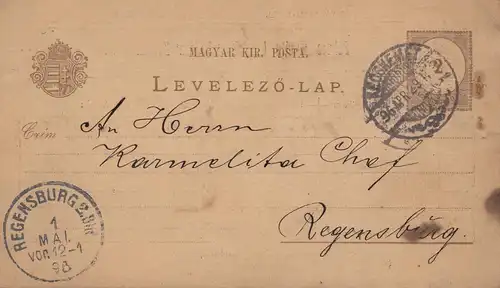 MAGYAR KIR. POSTA.
LEVELEZŐ-LAP.
Czím
An Herrn
Karmelita Chef
Regensburg.
REGENSBURG 2.
1
MAI.
VOR.12-1
98